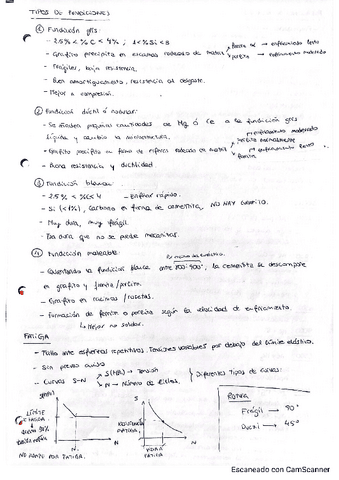 TIPOS DE FUNDICIONES
① Fundición gris:
- 2.5% < % C < 4% ; 1 < % Si < 3
- Grafito precipita en escamas rodeado de matriz
ferrita α → enfriamiento lento
perlita → enfriamiento moderado
- Frágiles, baja resistencia.
- Buen amortiguamiento, resistencia al desgaste.
- Mejor a compresión.
② Fundición dúctil o nodular:
- Se añaden pequeñas cantidades de Mg ó Ce a la fundición gris
líquida y cambia la microestructura.
- Grafito precipita en forma de esferas rodeado de matriz
- Buena resistencia y ductilidad.
③ Fundición blanca:
- 2.5% < %C < 4 - Enfriar rápido.
- Si (<1%), Carbono en forma de cementita, NO HAY GRAFITO.
- Muy dura, muy frágil.
- Tan dura que no se puede mecanizar.
④ Fundición maleable:
- Calentando la fundición blanca entre 800-900°, la cementita se descompone
en grafito y ferrita/perlita.
- Grafito en racimos / rosetas.
- Formación de ferrita o perlita según la velocidad de enfriamiento.
↳ Mejor no soldar.
FATIGA
- Fallo ante esfuerzos repetitivos. Tensiones variables por debajo del límite elástico.
- Sin previo aviso
- Curvas S-N
S (MPa) → Tensión
N → Número de ciclos.
Diferentes tipos de curvas:
S (MPa)
S
LÍMITE
FATIGA
RESISTENCIA
FATIGA
N
N
VIDA
FATIGA
NO ROMPE POR FATIGA.
ROTURA
Frágil → 90°
Dúctil → 45°
Escaneado con CamScanner